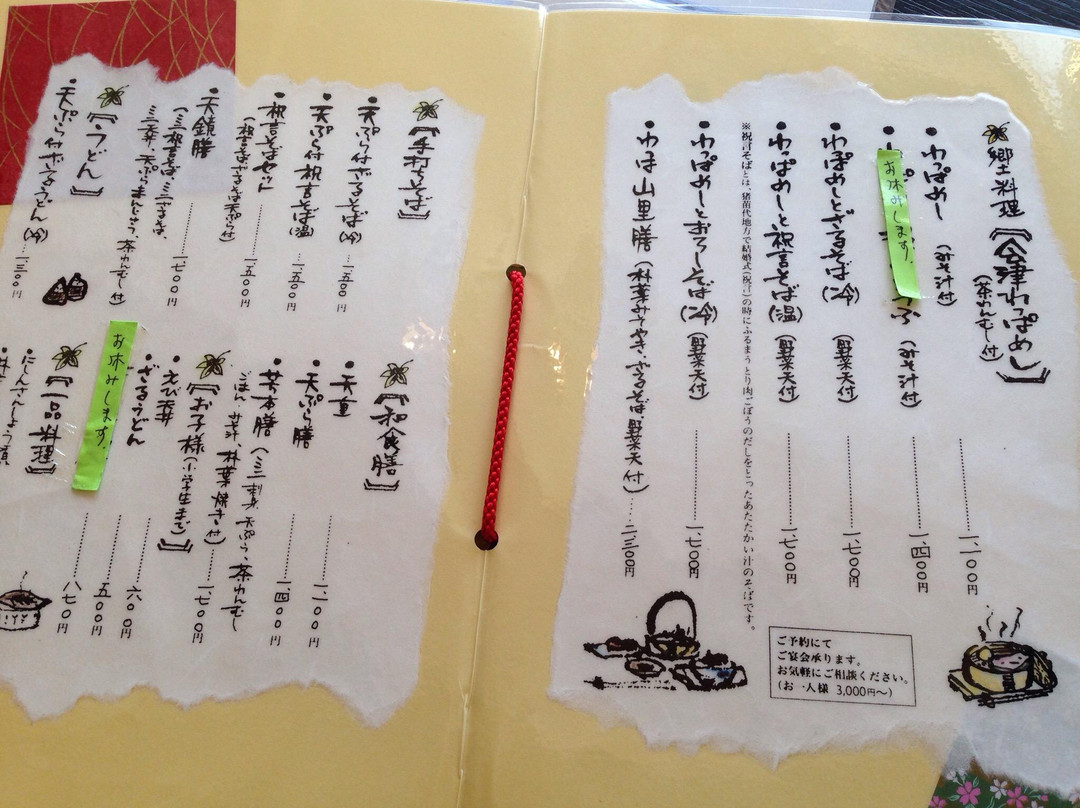 郷土料理『会津わっぱめし』
(茶わんむし付)
・わっぱめし (みそ汁付) 一、一〇〇円
お休みします。
(みそ汁付) 一、四〇〇円
・わっぱめしとざるそば(冷) (野菜天付) 一、七〇〇円
・わっぱめしと祝言そば(温) (野菜天付) 一、七〇〇円
※祝言そばとは、猪苗代地方で結婚式(祝言)の時にふるまうとり肉ごぼうのだしをとったあたたかい汁のそばです。
・わっぱめしとおろしそば(冷) (野菜天付) 一、七〇〇円
・わっぱ山里膳
二、三〇〇円
ご予約にて
ご宴会承ります。
お気軽にご相談ください。
(お一人様 3,000円〜)
『手打そば』
・天ぷら付ざるそば(冷) 一、五〇〇円
・天ぷら付祝言そば(温) 一、五〇〇円
・祝言そばセット 一、五〇〇円
(祝言そばざるそば天ぷら付)
・天鏡膳 一、七〇〇円
(ミニ祝言そば・ミニざるそば、
ミニ丼、天ぷらまんじゅう、茶わんむし付)
『うどん』
・天ぷら付ざるうどん(冷) 一、三〇〇円
・ざるうどん
お休みします。
『和食膳』
・天重 一、一〇〇円
・天ぷら膳 一、四〇〇円
一、七〇〇円
『お子様(小学生まで)』
・えび丼 六〇〇円
五〇〇円
『一品料理』
・にしんさんしょう漬 八七〇円